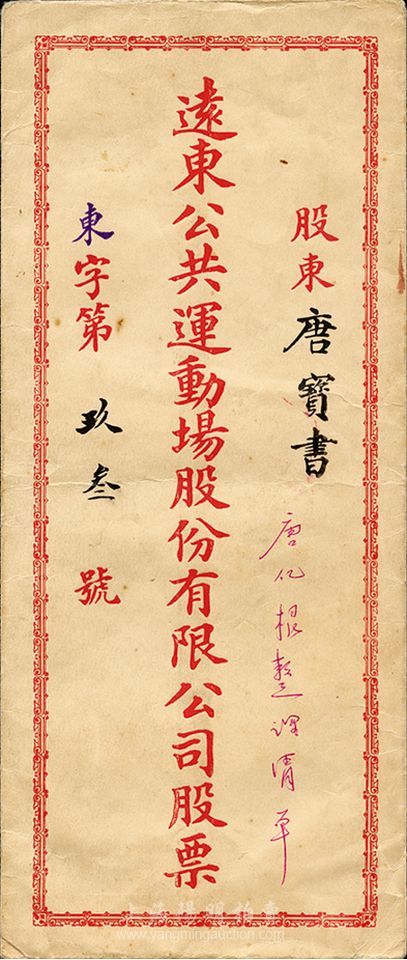 股東 唐寶書
唐仁根整理清單
遠東公共運動場股份有限公司股票
東字第玖叁號
上海陽明拍賣
www.yangmingauction.com